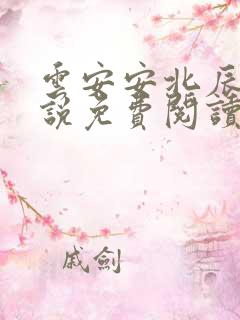 雲安安北辰
說免費閱讀
戚劍